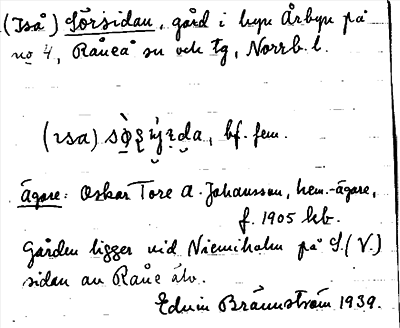 (Iså) Sörsidan, gård i byn Årbyn på
no 4, Råneå sn och tg, Norrb. l.
bf. fem.
Ägare: Oskar Tore A. Johansson, hem.-ägare,
f. 1905 hb.
Gården ligger vid Niemiholm på S. (V.)
sidan av Råne älv.
Edvin Brännström 1939.